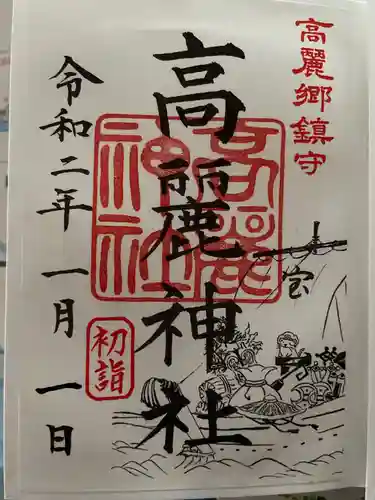 高麗郷鎮守
高麗神社
高麗神社
宝
令和二年一月一日
初詣